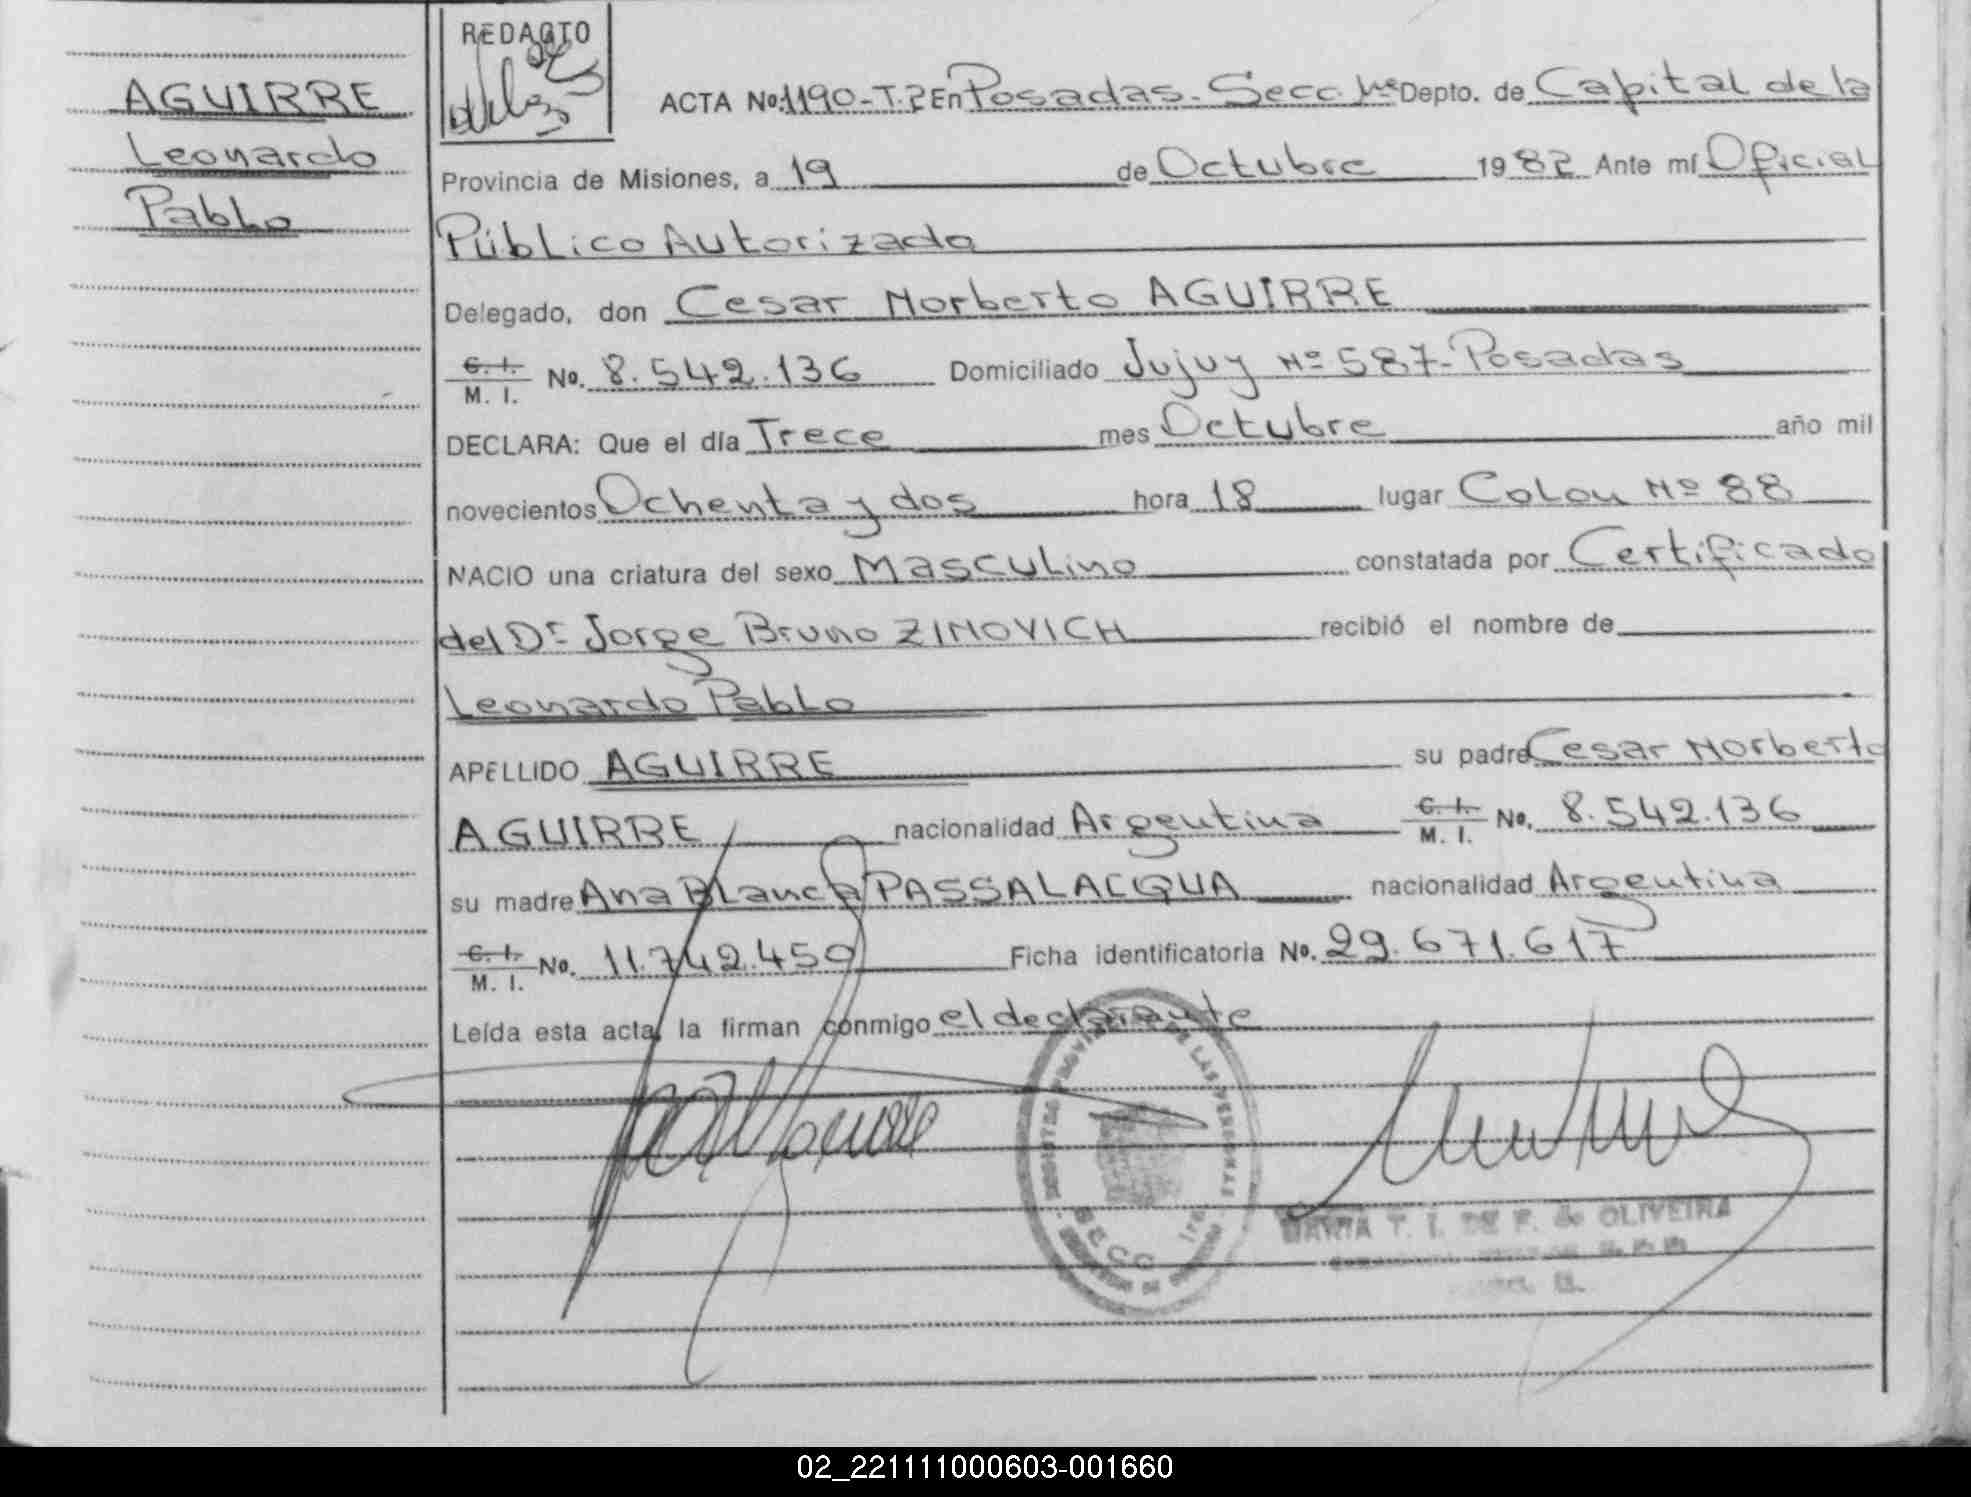 AGUIRRE
Leonardo
Pablo
REDACTO
ACTA No. 1190-T.2 En Posadas. Secc. 1ra Depto. de Capital de la
Provincia de Misiones, a 19 de Octubre 1982 Ante mí Oficial
Público Autorizado
Delegado, don Cesar Norberto AGUIRRE
C. I.
M. I. No. 8.542.136 Domiciliado Jujuy Nº 587-Posadas
DECLARA: Que el día Trece mes Octubre año mil
novecientos Ochenta y dos hora 18 lugar Colon Nº 88
NACIO una criatura del sexo Masculino constatada por Certificado
del Dr Jorge Bruno ZIMOVICH recibió el nombre de
Leonardo Pablo
APELLIDO AGUIRRE su padre Cesar Norberto
AGUIRRE nacionalidad Argentina C. I.
M. I. No. 8.542.136
su madre Ana Blanca PASSALACQUA nacionalidad Argentina
C. I.
M. I. No. 11.742.459 Ficha identificatoria No. 29.671.617
Leída esta acta, la firman conmigo el declarante
DE LAS PERSONAS
SECC 1ra
MARIA T. I. DE F. de OLIVEIRA
02_221111000603-001660